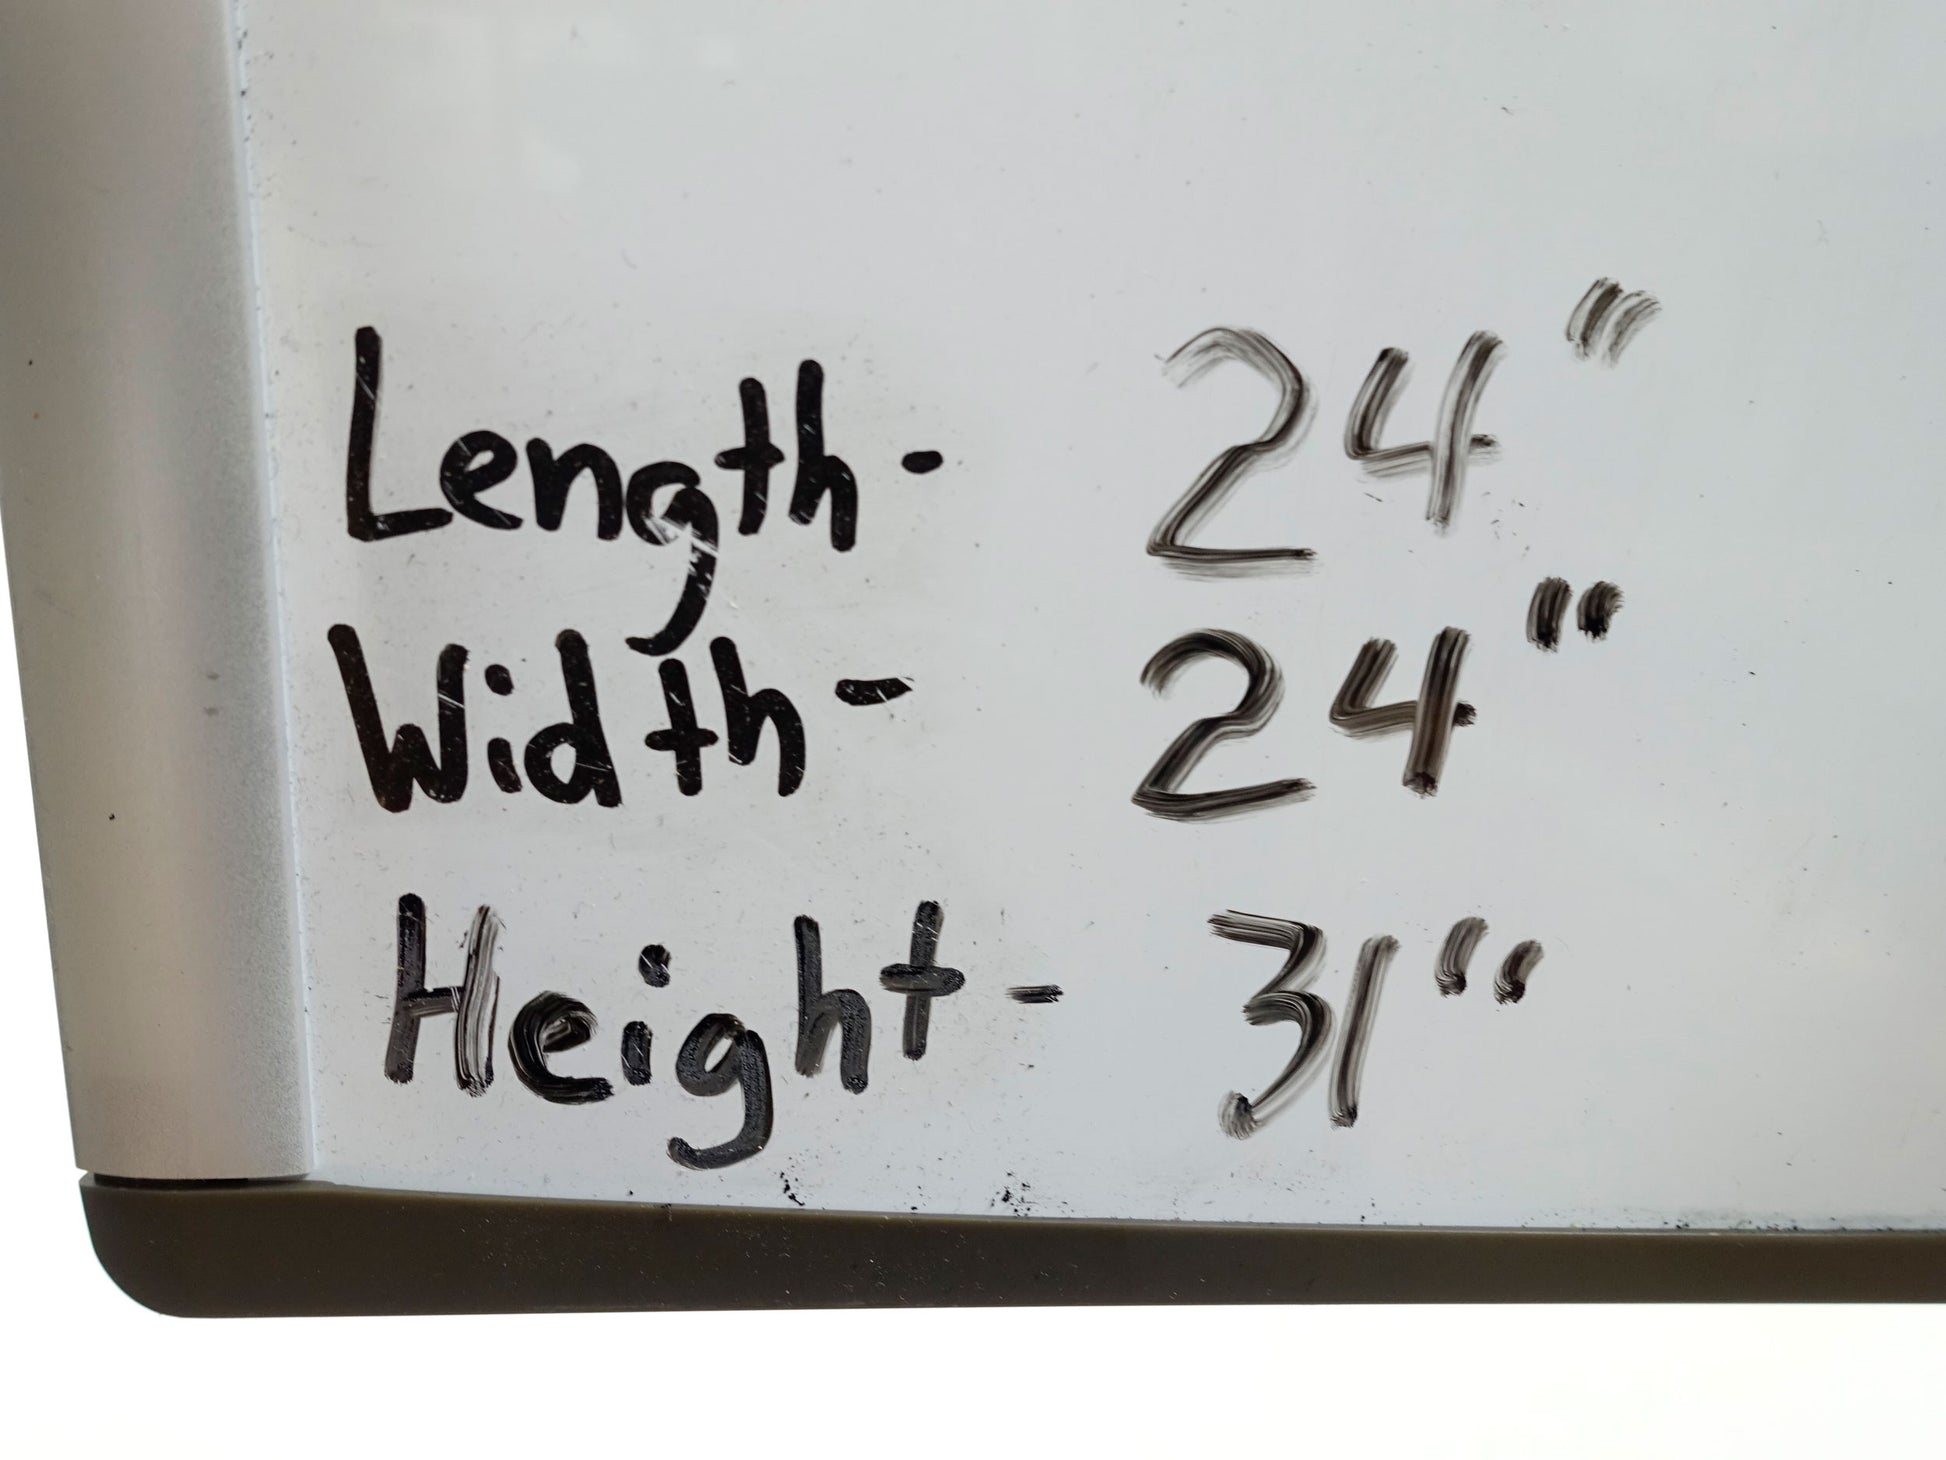 Length- 24"
Width- 24"
Height- 31"